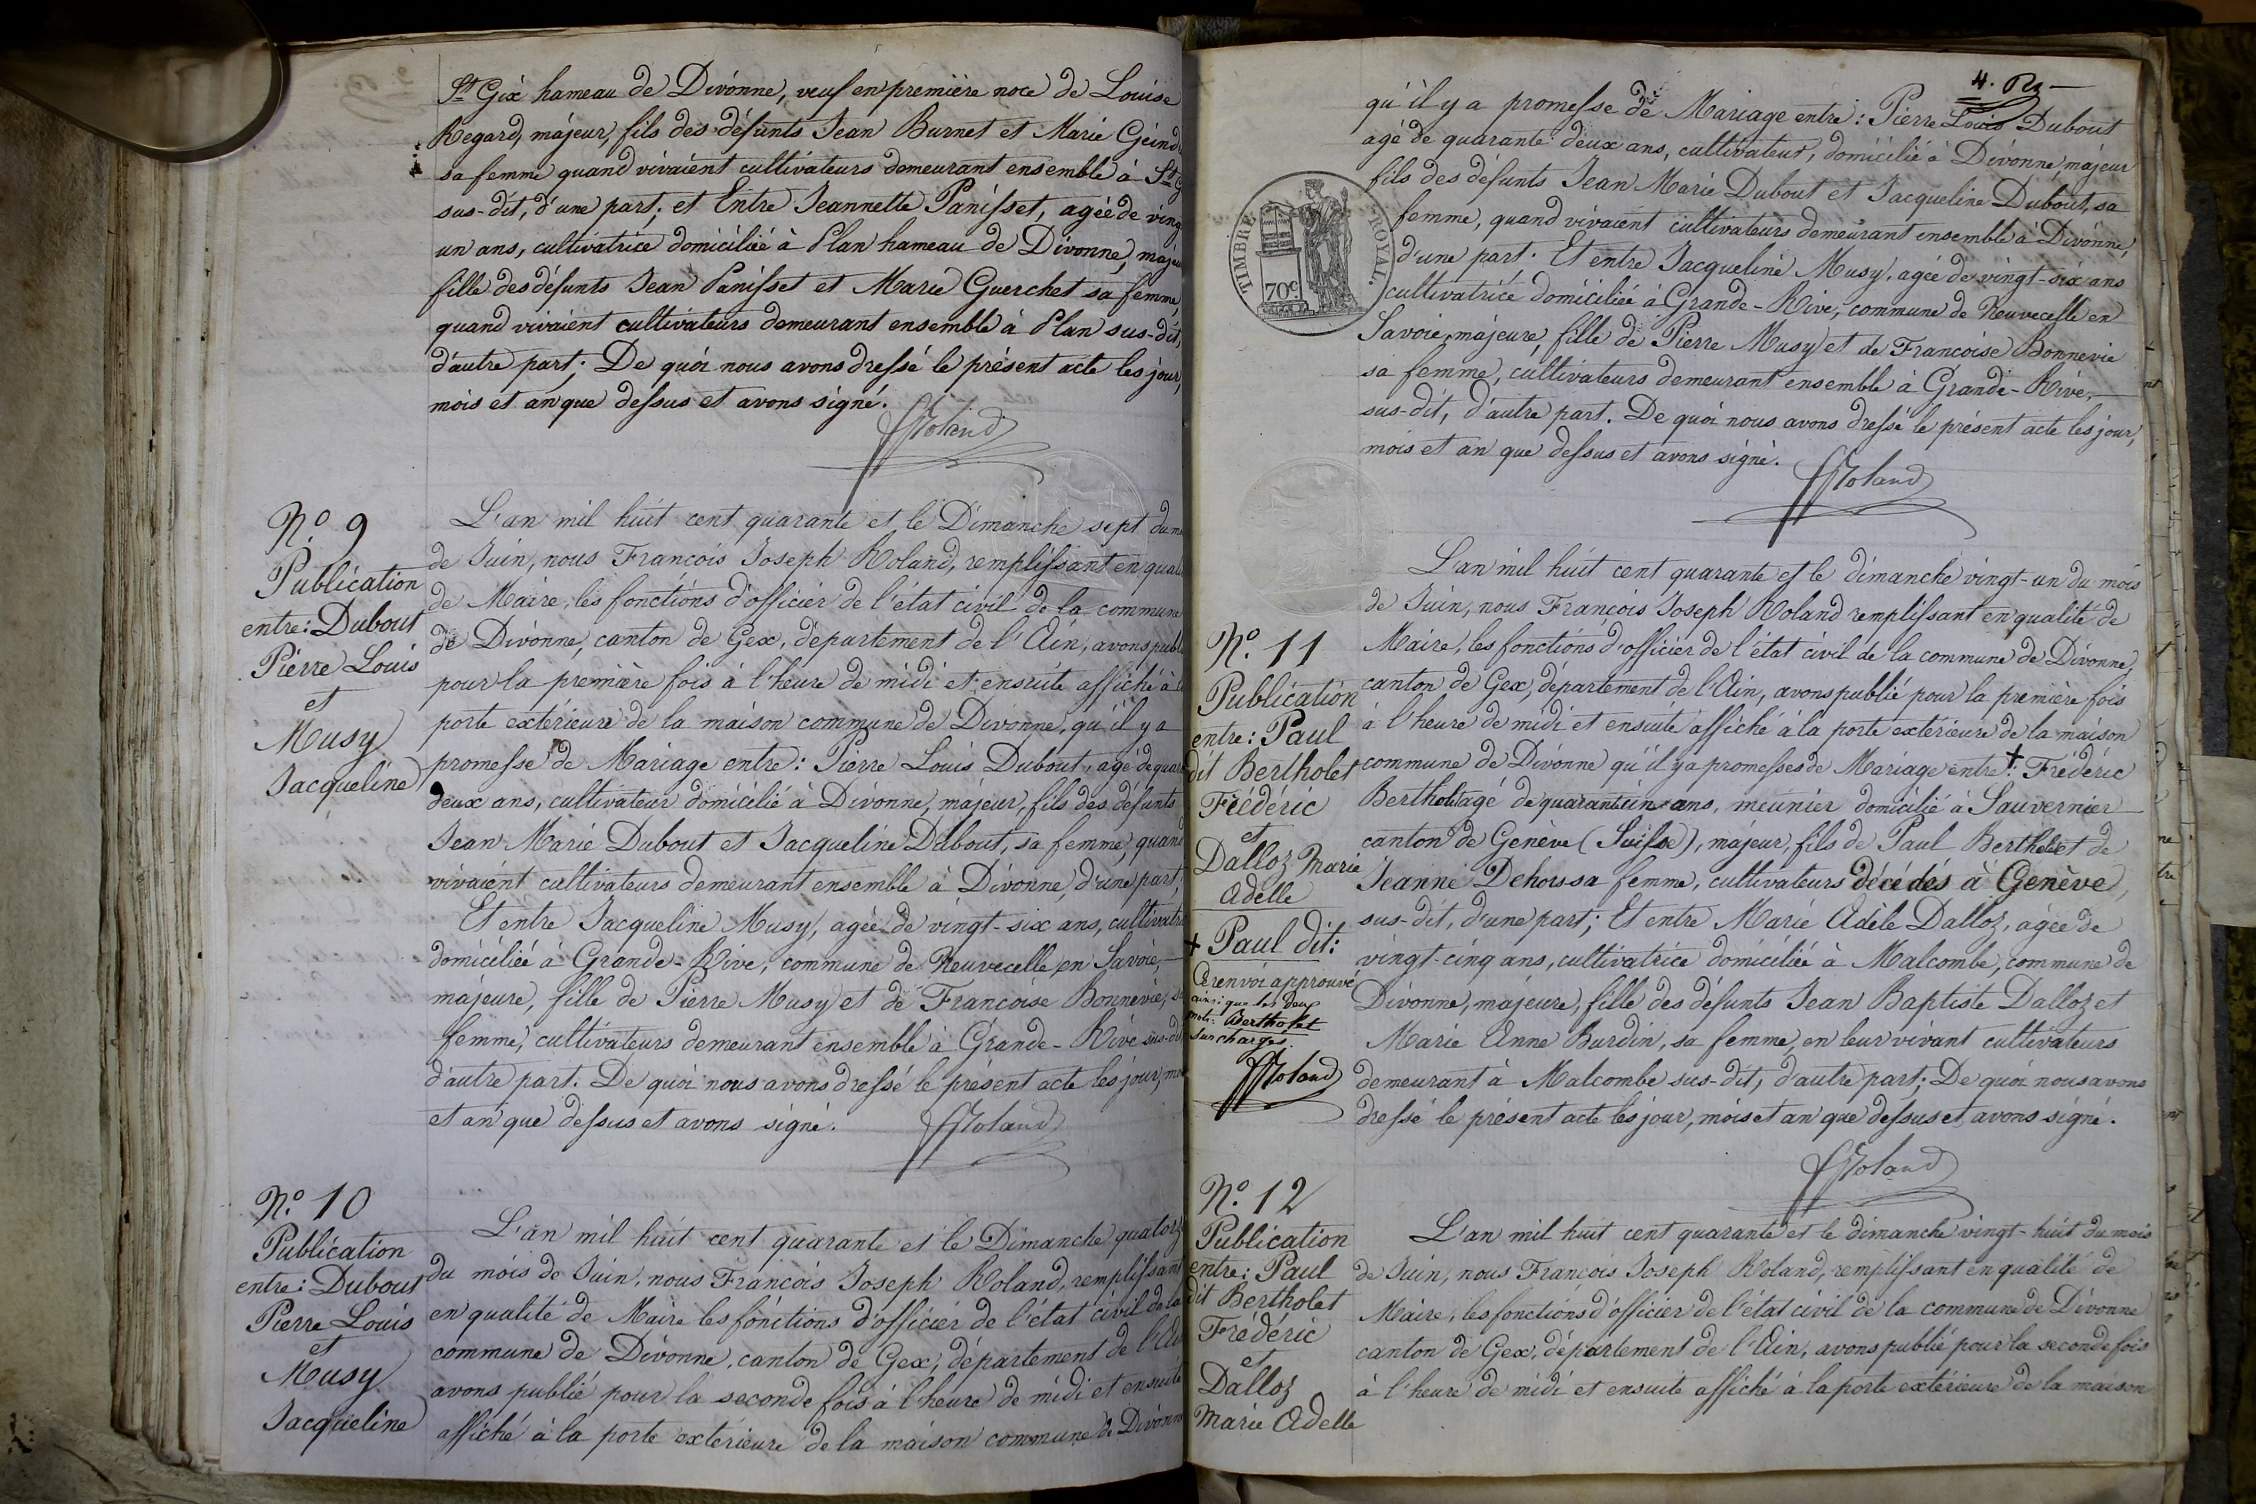 St Gix hameau de Divonne, veuf en première noce de Louise
Regard, majeur, fils des défunts Jean Burnet et Marie
sa femme quand vivaient cultivateurs demeurant ensemble à St
sus-dit, d'une part; et Entre Jeannette Panisset, agée de vingt
un ans, cultivatrice domiciliée à Plan hameau de Divonne, majeu
fille des défunts Jean Panisset et Marie Guerchet sa femme,
quand vivaient cultivateurs demeurant ensemble à Plan sus-dit,
d'autre part. De quoi nous avons dressé le présent acte les jour,
mois et an que dessus et avons signé.
Roland
No 9
Publication
entre: Dubout
Pierre Louis
et
Musy
Jacqueline
L'an mil huit cent quarante et le Dimanche sept du m
de Juin, nous François Joseph Roland, remplissant en quali
de Maire, les fonctions d'officier de l'état civil de la commune
de Divonne, canton de Gex, département de l'Ain, avons publ
pour la première fois à l'heure de midi et ensuite affiché à l
porte extérieure de la maison commune de Divonne, qu'il y a
promesse de Mariage entre: Pierre Louis Dubout, agé de quara
deux ans, cultivateur domicilié à Divonne, majeur, fils des défunts
Jean Marie Dubout et Jacqueline Dubout, sa femme, quand
vivaient cultivateurs demeurant ensemble à Divonne, d'une part;
Et entre Jacqueline Musy, agée de vingt-six ans, cultivatri
domiciliée à Grande-Rive, commune de Neuvecelle en Savoie,
majeure, fille de Pierre Musy et de Françoise Bonnevie, s
femme, cultivateurs demeurant ensemble à Grande-Rive sus-di
d'autre part. De quoi nous avons dressé le présent acte les jour, mo
et an que dessus et avons signé.
Roland
No 10
Publication
entre: Dubout
Pierre Louis
et
Musy
Jacqueline
L'an mil huit cent quarante et le Dimanche quatorz
du mois de Juin, nous François Joseph Roland, remplissant
en qualité de Maire les fonctions d'officier de l'état civil de la
commune de Divonne, canton de Gex, département de l'Ai
avons publié pour la seconde fois à l'heure de midi et ensuite
affiché à la porte extérieure de la maison commune de Divonne
4.
qu'il y a promesse de Mariage entre: Pierre Louis Dubout
agé de quarante deux ans, cultivateur, domicilié à Divonne, majeur
fils des défunts Jean Marie Dubout et Jacqueline Dubout, sa
femme, quand vivaient cultivateurs demeurant ensemble à Divonne,
d'une part. Et entre Jacqueline Musy, agée de vingt-six ans
cultivatrice domiciliée à Grande-Rive, commune de Neuvecelle en
Savoie, majeure, fille de Pierre Musy et de Françoise Bonnevie
sa femme, cultivateurs demeurant ensemble à Grande-Rive,
sus-dit, d'autre part. De quoi nous avons dressé le présent acte les jour,
mois et an que dessus et avons signé.
Roland
TIMBRE ROYAL.
70c
No. 11
Publication
entre: Paul
dit Bertholet
Frédéric
et
Dalloz Marie
Adelle
+ Paul dit:
Ce renvoi approuvé
ainsi que les deux
mots: Bertholet
surchargés.
Roland
L'an mil huit cent quarante et le dimanche vingt-un du mois
de Juin, nous François Joseph Roland remplissant en qualité de
Maire, les fonctions d'officier de l'état civil de la commune de Divonne,
canton de Gex, département de l'Ain, avons publié pour la première fois
à l'heure de midi et ensuite affiché à la porte extérieure de la maison
commune de Divonne qu'il y a promesses de Mariage entre +: Frédéric
Bertholet agé de quarante un ans, meunier domicilié à Sauvernier
canton de Genève (Suisse), majeur, fils de Paul Bertholet et de
Jeanne Dehors sa femme, cultivateurs décédés à Genève,
sus-dit, d'une part; Et entre Marie Adèle Dalloz, agée de
vingt-cinq ans, cultivatrice domiciliée à Malcombe, commune de
Divonne, majeure, fille des défunts Jean Baptiste Dalloz et
Marie Anne Burdin, sa femme, en leur vivant cultivateurs
demeurant à Malcombe sus-dit, d'autre part; De quoi nous avons
dressé le présent acte les jour, mois et an que dessus et avons signé.
Roland
No. 12
Publication
entre: Paul
dit Bertholet
Frédéric
et
Dalloz
Marie Adelle
L'an mil huit cent quarante et le dimanche vingt-huit du mois
de Juin, nous François Joseph Roland, remplissant en qualité de
Maire, les fonctions d'officier de l'état civil de la commune de Divonne
canton de Gex, département de l'Ain, avons publié pour la seconde fois
à l'heure de midi et ensuite affiché à la porte extérieure de la maison